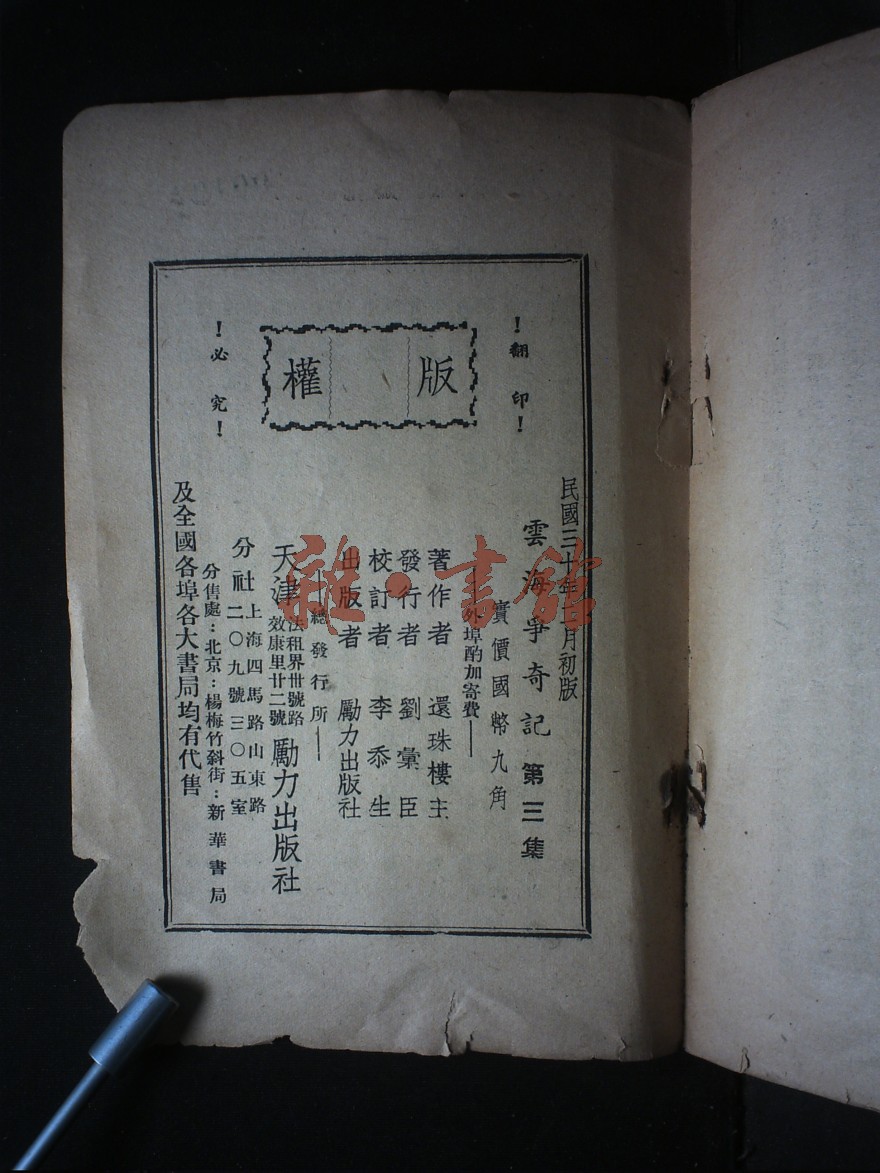 版權
！翻印！
！必究！
民國三十年 月初版
雲海爭奇記 第三集
實價國幣九角
外埠酌加寄費
著作者 還珠樓主
發行者 劉彙臣
校訂者 李忝生
出版者 勵力出版社
總發行所
天津 法租界卅號路 效康里廿二號 勵力出版社
分社 上海四馬路山東路 二〇九號三〇五室
分售處：北京：楊梅竹斜街：新華書局
及全國各埠各大書局均有代售
雜·書館